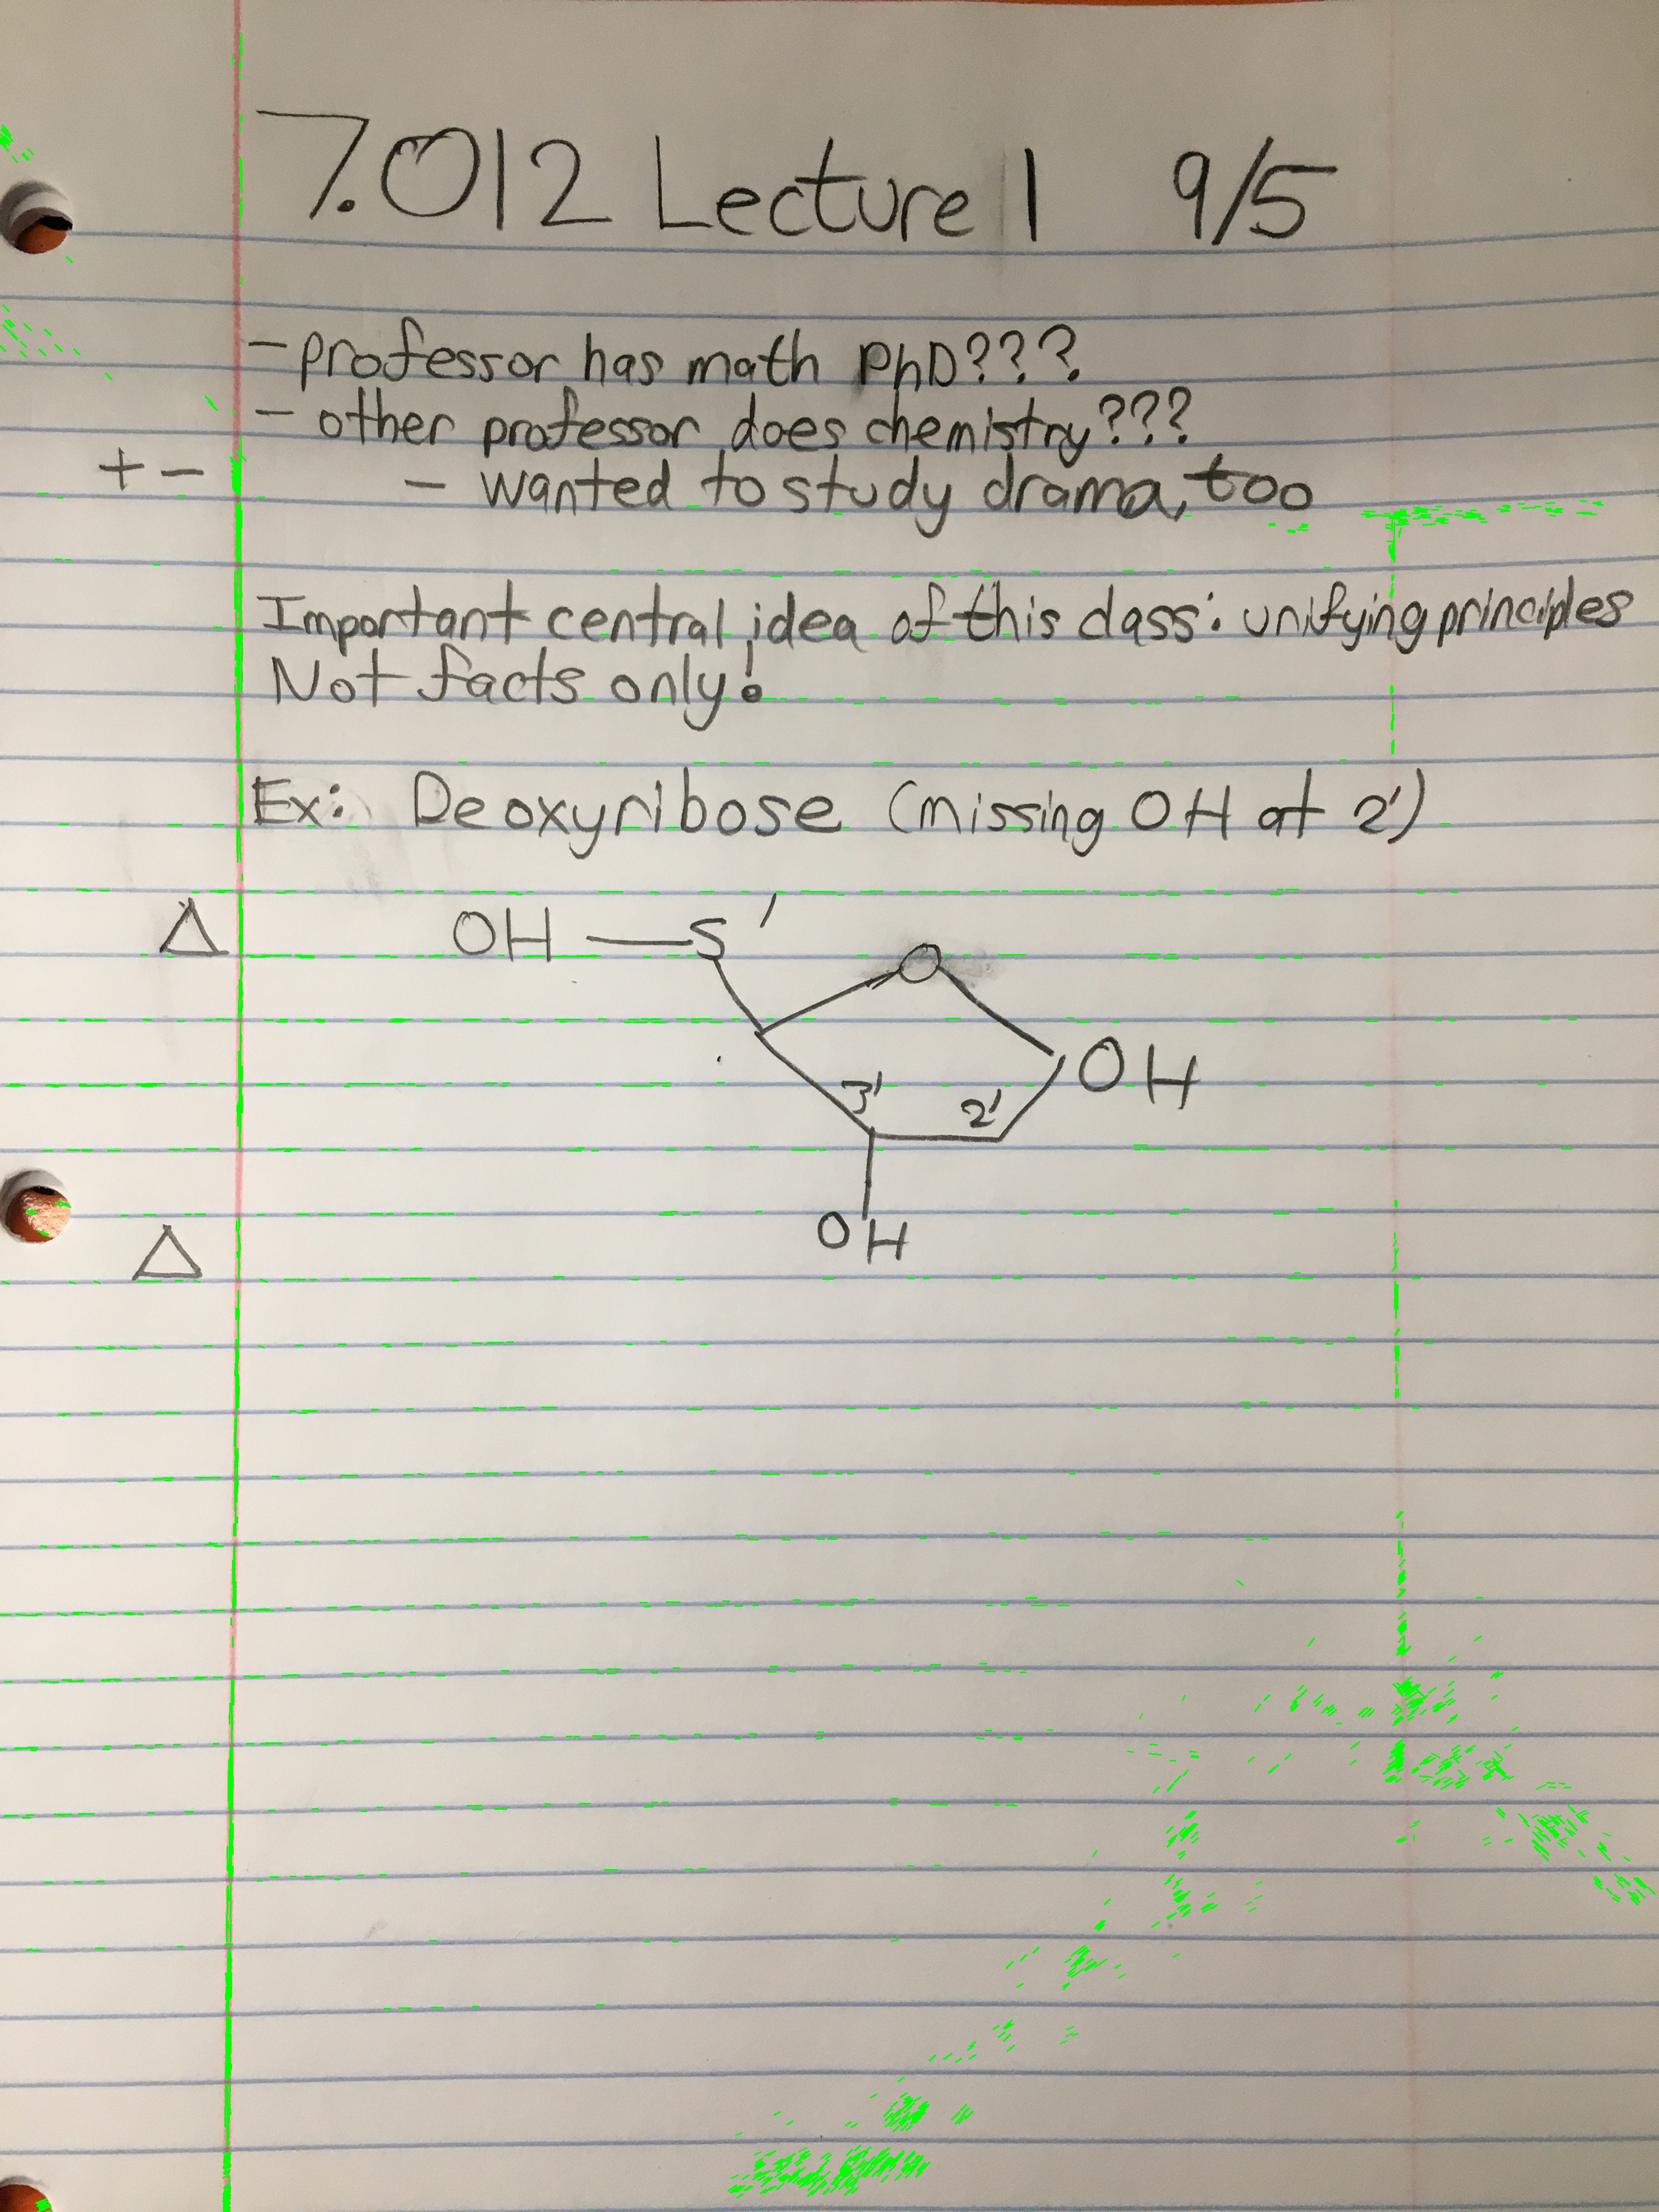 7.012 Lecture 1 9/5
- professor has math PhD???
- other professor does chemistry???
+ - - wanted to study drama, too
Important central idea of this class: unifying principles
Not facts only!
Ex: Deoxyribose (missing OH at 2')
Δ OH 5'
O
OH
3' 2'
OH
Δ